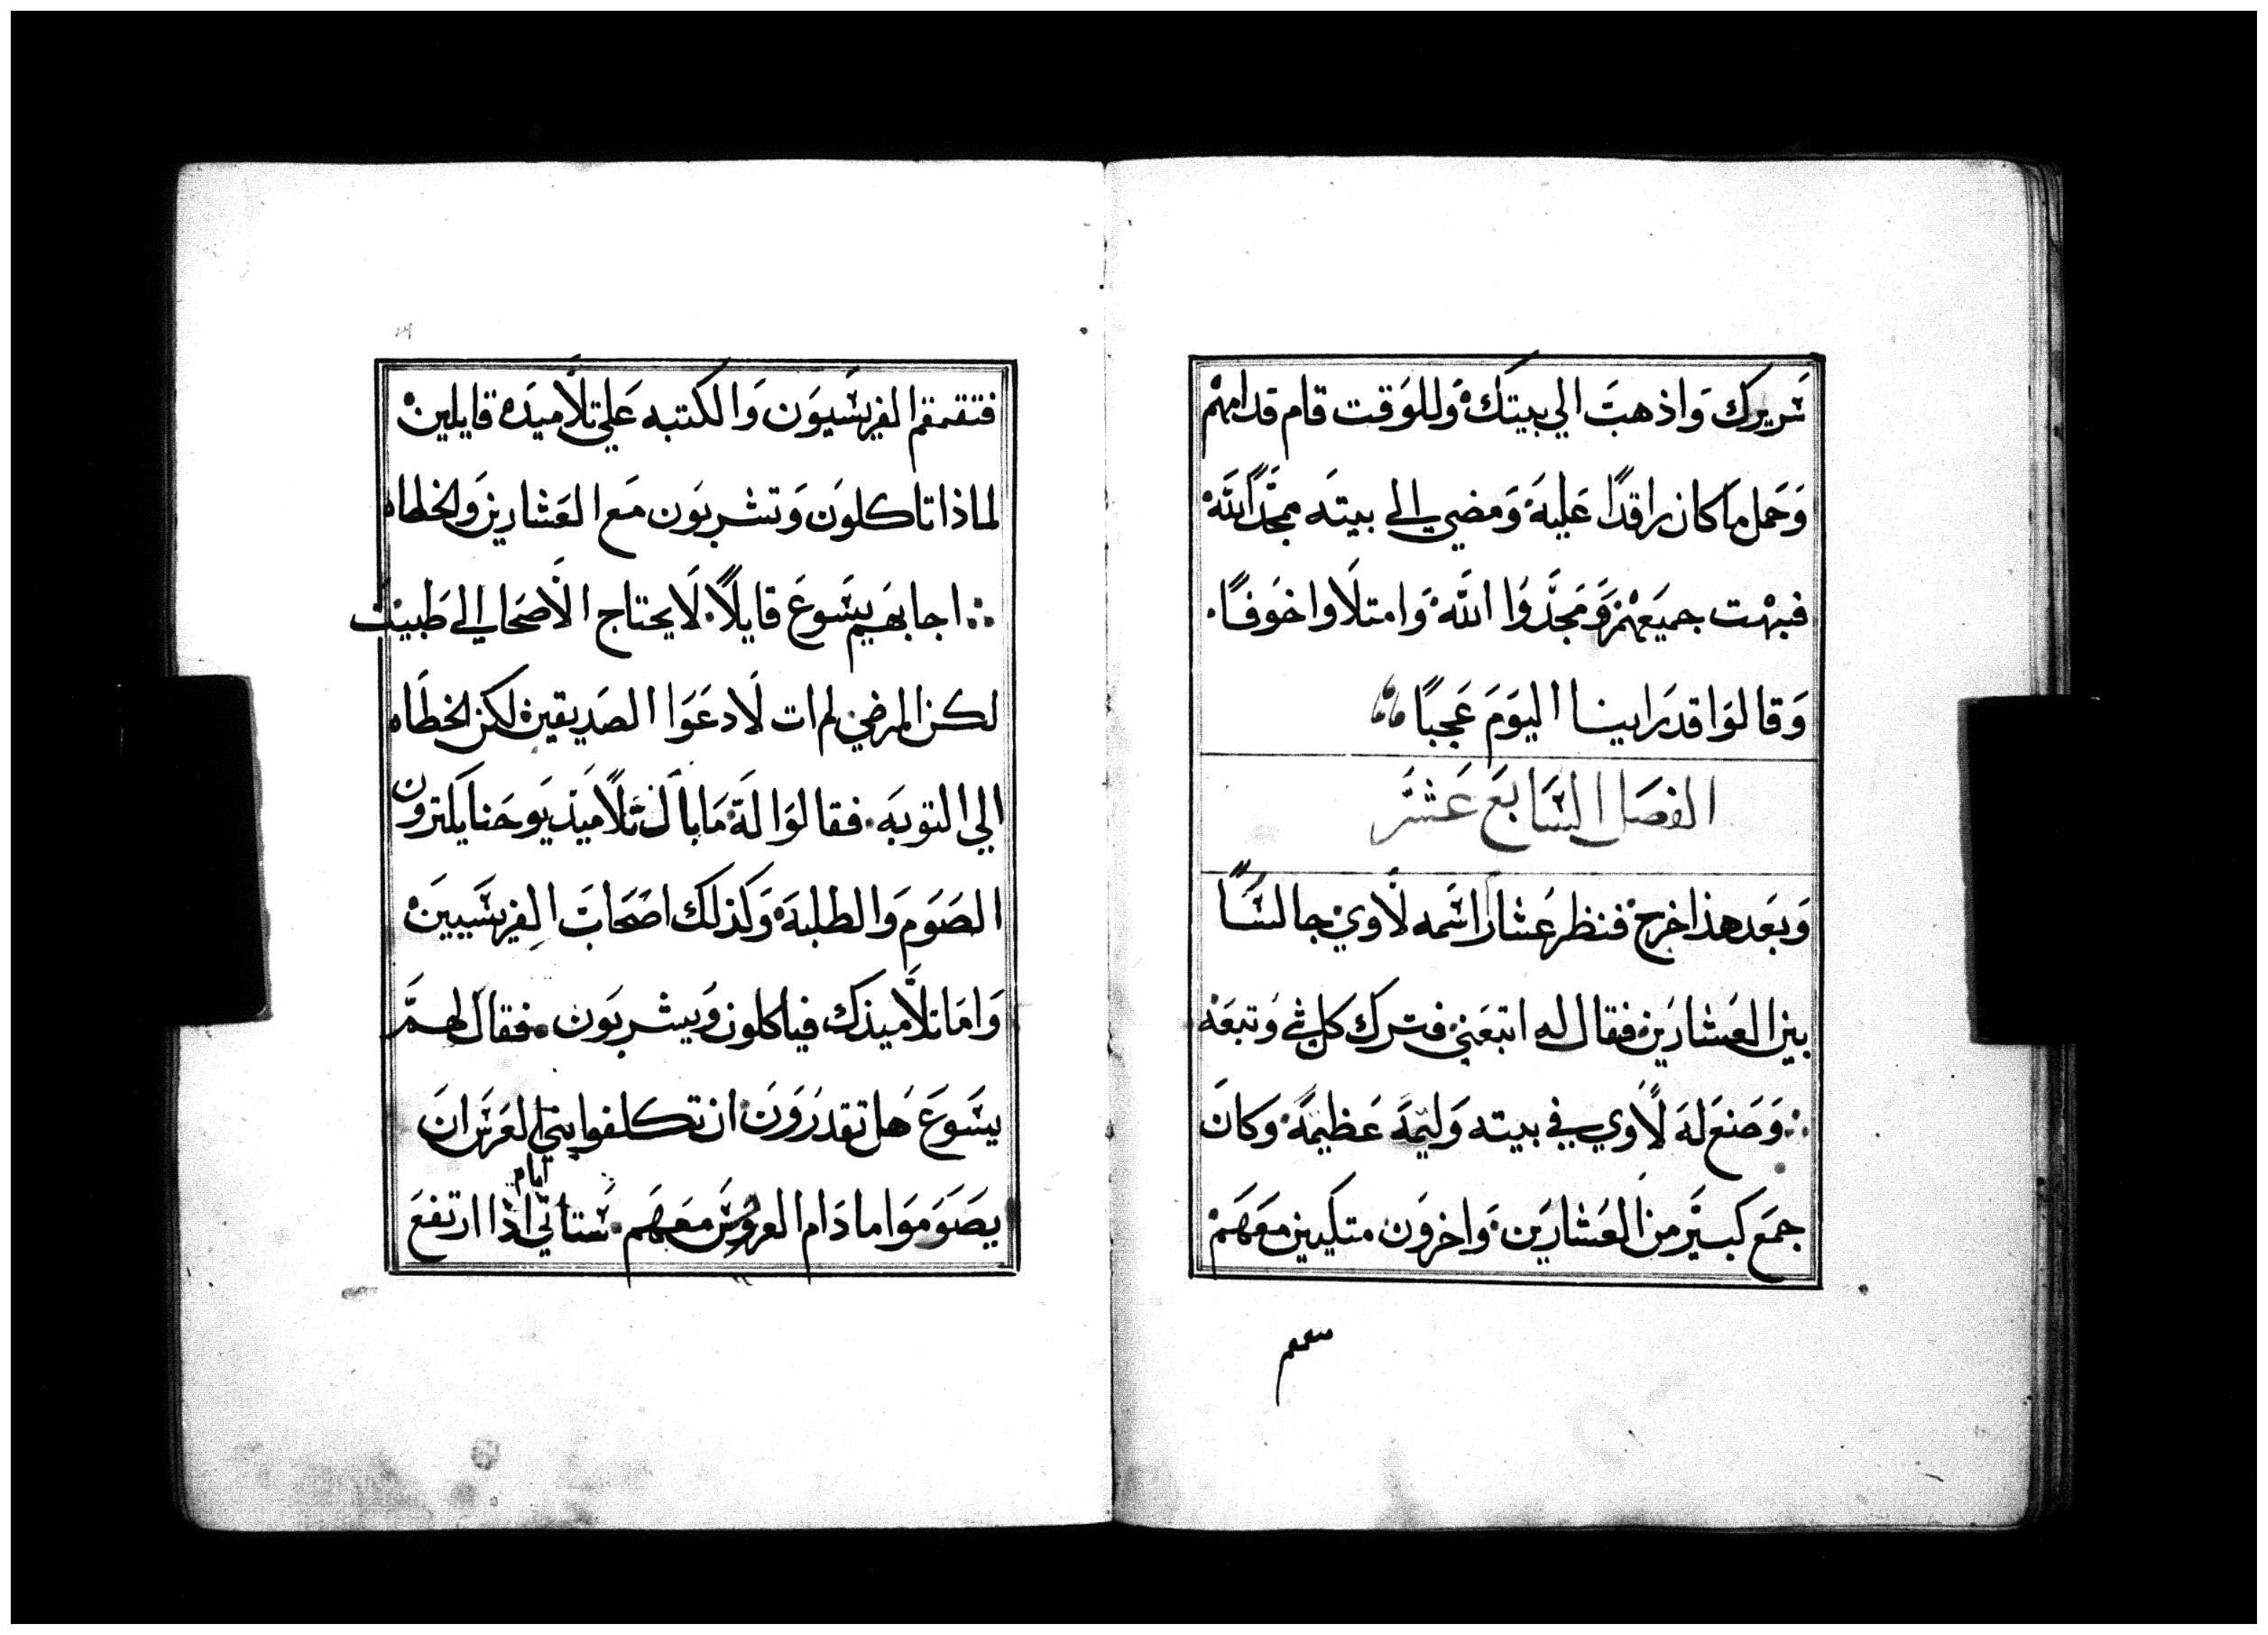 سريرك واذهب الي بيتك وللوقت قام قدامهم
وحمل ما كان راقدًا عليه ومضي الي بيته ممجدًا الله
فبهت جميعهم ومجدوا الله وامتلاوا خوفًا
وقالوا قد راينا اليوم عجبًا
الفصل السابع عشر
وبعد هذا خرج فنظر عشارًا اسمه لاوي جالسًا
بين العشارين فقال له اتبعني فترك كل شي وتبعه
وصنع له لاوي في بيته وليمة عظيمة وكان
جمع كبير من العشارين واخرون متكيين معهم
فتقمقم الفريسيون والكتبه علي تلاميذه قايلين
لماذا تاكلون وتشربون مع العشارين والخطاه
اجابهم يسوع قايلًا لا يحتاج الاصحاب الي طبيب
لكن المرضي لم ات لادعوا الصديقين لكن الخطاه
الي التوبه فقالوا له ما بال تلاميذ يوحنا يكترون
الصوم والطلبه وكذلك اصحاب الفريسيين
واما تلاميذك فياكلون ويشربون فقال لهم
يسوع هل تقدرون ان تكلفوا بني العرس ان
يصوموا ما دام العروس معهم ستاتي ايام اذا ارتفع